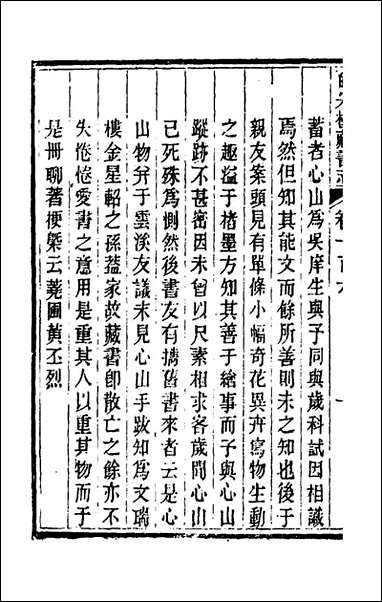 皕宋樓藏書志 卷一百六 一
蓄者心山爲吳庠生與予同與歲科試因相識
焉然但知其能文而餘所善則未之知也後于
親友案頭見有單條小幅奇花異卉寫物生動
之趣溢于楮墨方知其善于繪事而予與心山
蹤跡不甚密因未曾以尺素相求客歲聞心山
已死殊爲惻然後書友有擕舊書來者云是心
山物幷于雲溪友議末見心山手跋知爲文瑞
樓金星軺之孫葢家故藏書卽散亡之餘亦不
失惓惓愛書之意用是重其人以重其物而于
是冊聊著梗槩云蕘圃黃丕烈